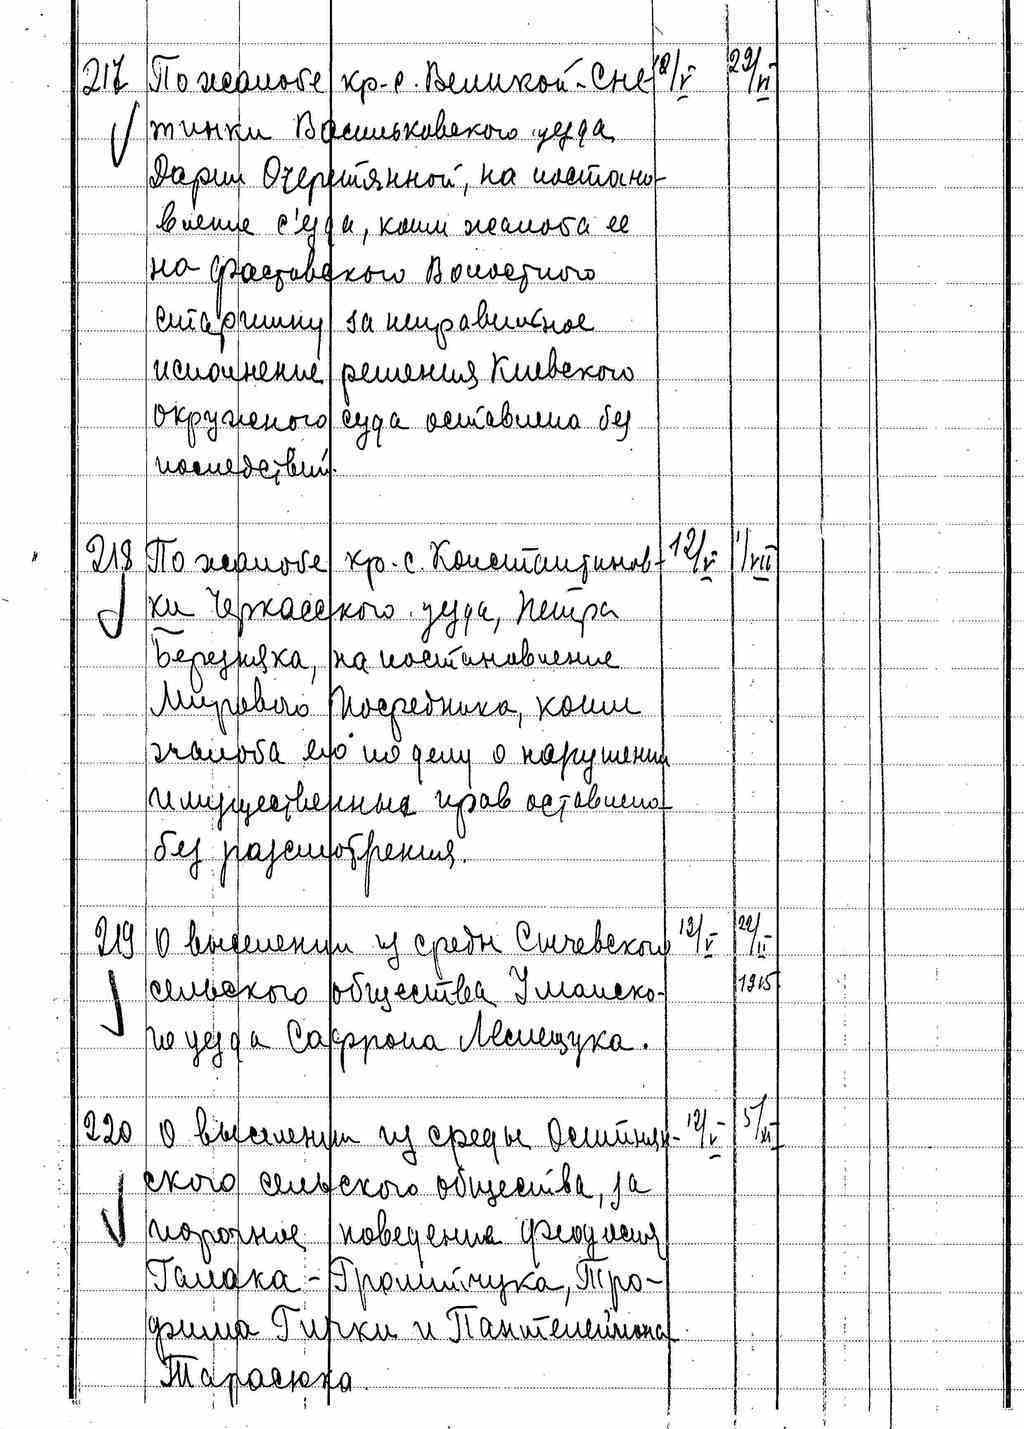 217 По жалобе кр-с. Великой-Сне- 12/V 22/VI
тинки Васильковского уезда
Дарии Очеретянной, на постано-
вление с'езда, коим жалоба ее
на Фастовского Волостного
старшину за неправильное
исполнение решения Киевского
окружного суда оставлена без
последствий.
218 По жалобе кр-с. Константинов- 12/V 1/VII
ки Черкасского уезда, Петра
Березняка, на постановление
Мирового Посредника, коим
жалоба его по делу о нарушении
имущественных прав оставлена
без разсмотрения.
219 О выселении из среды Сычевского 12/V 22/II
сельского общества Уманско- 1915
го уезда Сафрона Лемещука.
220 О выселении из среды Оситняж- 12/V 5/XI
ского сельского общества, за
порочное поведение Феодосия
Гамака-Громийчука, Тро-
фима Гирки и Пантелеймона
Тарасюка